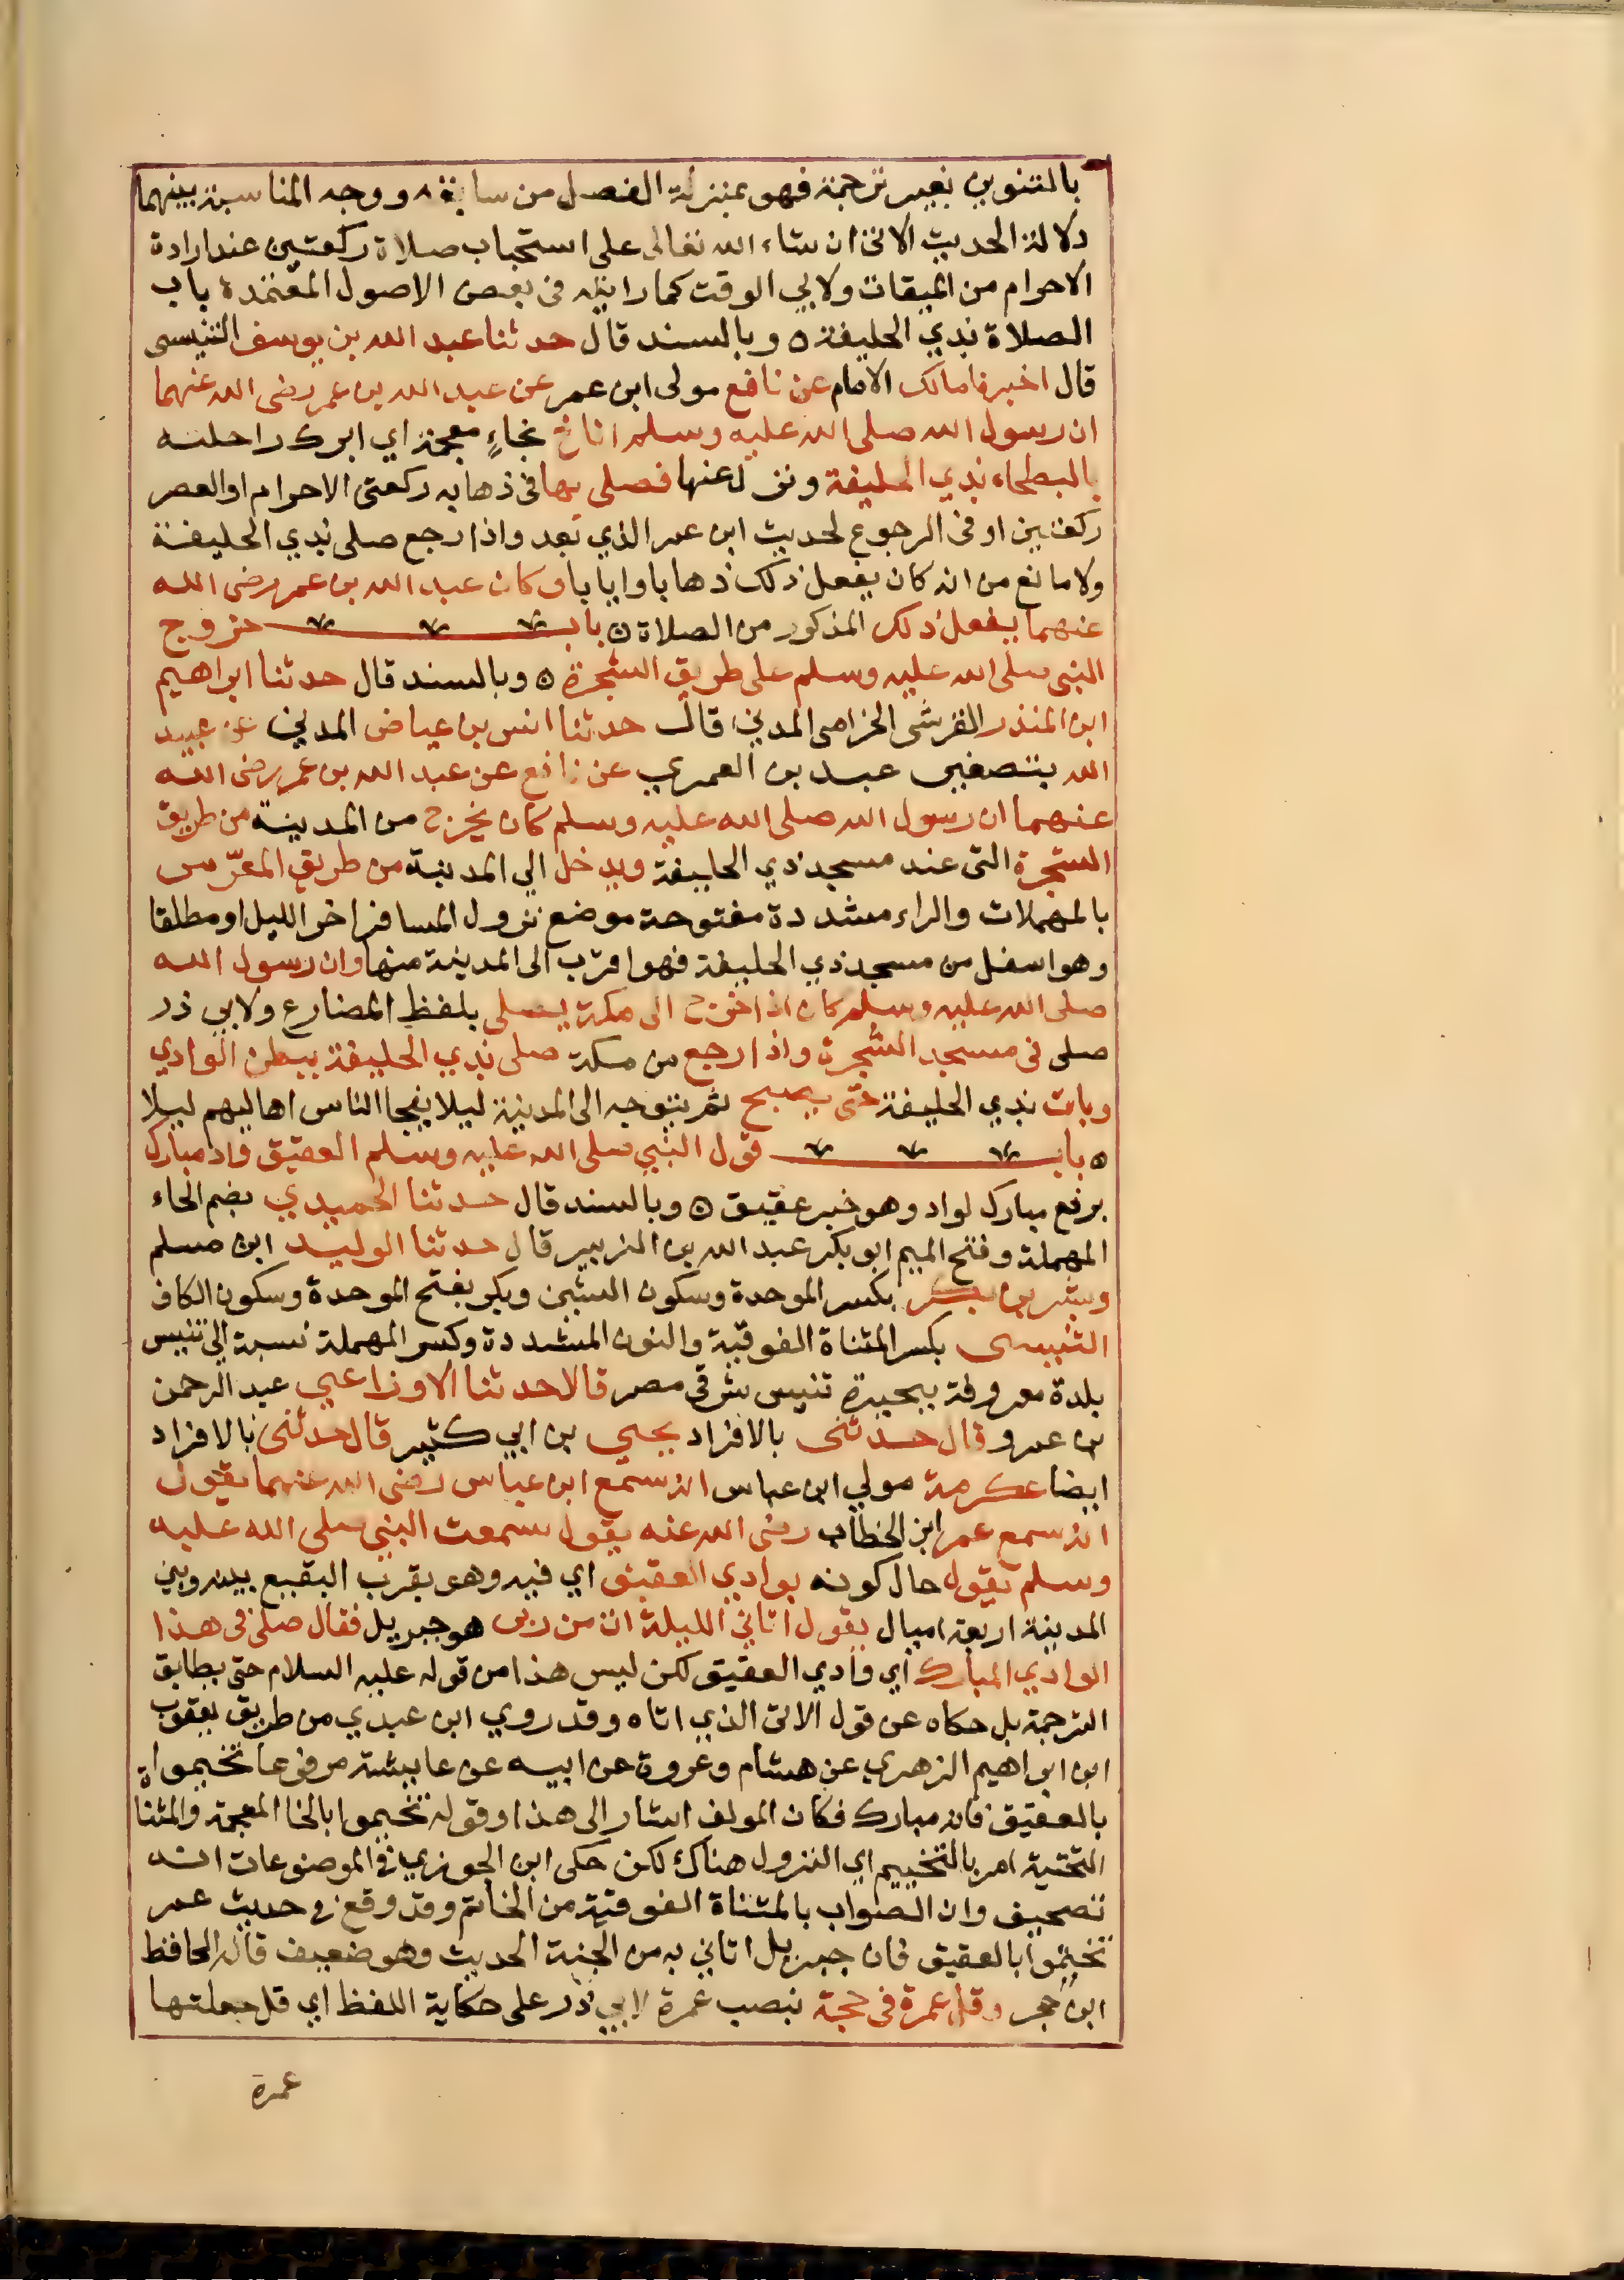 بالتنوين بغير ترجمة فهو بمنزلة الفصل من سابقه ووجه المناسبة بينهما
دلالة الحديث الاتى ان شاء الله تعالى على استحباب صلاة ركعتين عند ارادة
الاحرام من الميقات ولابي الوقت كما رايته فى بعض الاصول المعتمدة باب
الصلاة بذي الحليفة ٥ وبالسند قال حدثنا عبد الله بن يوسف التنيسى
قال اخبرنا مالك الامام عن نافع مولى ابن عمر عن عبد الله بن عمر رضى الله عنهما
ان رسول الله صلى الله عليه وسلم اناخ بخاءٍ معجمة اي ابرك راحلته
بالبطحاء بذي الحليفة ونزل عنها فصلى بها فى ذهابه ركعتى الاحرام او العصر
ركعتين او فى الرجوع لحديث ابن عمر الذي بعد واذا رجع صلى بذي الحليفة
ولا مانع من انه كان يفعل ذلك ذهابا وايابا وكان عبد الله بن عمر رضى الله
عنهما يفعل ذلك المذكور من الصلاة ٥ باب خروج
النبى صلى الله عليه وسلم على طريق الشجرة ٥ وبالسند قال حدثنا ابراهيم
ابن المنذر القرشى الحزامى المدني قال حدثنا انس بن عياض المدني عن عبيد
الله بتصغير عبد بن العمري عن نافع عن عبد الله بن عمر رضى الله
عنهما ان رسول الله صلى الله عليه وسلم كان يخرج من المدينة من طريق
الشجرة التى عند مسجد ذي الحليفة ويدخل الي المدينة من طريق المعرّس
بالمهملات والراء مشددة مفتوحة موضع نزول المسافر اخر الليل او مطلقا
وهو اسفل من مسجد ذي الحليفة فهو اقرب الى المدينة منها وان رسول الله
صلى الله عليه وسلم كان اذا خرج الى مكة يصلى بلفظ المضارع ولابي ذر
صلى فى مسجد الشجرة واذا رجع من مكة صلى بذي الحليفة ببطن الوادي
وبات بذي الحليفة حتى يصبح ثم يتوجه الى المدينة ليلا يفجا الناس اهاليهم ليلا
٥ باب قول النبي صلى الله عليه وسلم العقيق واد مبارك
برفع مبارك لواد وهو خبر عقيق ٥ وبالسند قال حدثنا الحميدي بضم الحاء
المهملة وفتح الميم ابو بكر عبد الله بن الزبير قال حدثنا الوليد ابن مسلم
وبشر بن بكر بكسر الموحدة وسكون الشين وبكر بفتح الموحدة وسكون الكاف
التنيسى بكسر المثناة الفوقية والنون المشددة وكسر المهملة نسبة الي تنيس
بلدة معروفة ببحيرة تنيس شرقي مصر قالا حدثنا الاوزاعي عبد الرحمن
بن عمرو قال حدثنى بالافراد يحيي بن ابي كثير قال حدثنى بالافراد
ايضا عكرمة مولي ابن عباس انه سمع ابن عباس رضى الله عنهما يقول
انه سمع عمر ابن الخطاب رضى الله عنه يقول سمعت النبى صلى الله عليه
وسلم يقول حال كونه بوادي العقيق اي فيه وهو بقرب البقيع بينه وبين
المدينة اربعة اميال يقول اتاني الليلة ات من ربى هو جبريل فقال صل فى هذا
الوادي المبارك اي وادي العقيق لكن ليس هذا من قوله عليه السلام حتى يطابق
الترجمة بل حكاه عن قول الاتى الذي اتاه وقد روي ابن عبدي من طريق يعقوب
ابن ابراهيم الزهري عن هشام وعروة عن ابيه عن عايشة مرفوعا تخيموا
بالعقيق فانه مبارك فكان المولف اشار الى هذا وقوله تخيموا بالخا المعجمة والمثناة
التحتية امر بالتخييم اي النزول هناك لكن حكى ابن الجوزي في الموضوعات انه
تصحيف وان الصواب بالمثناة الفوقية من الخاتم وقد وقع في حديث عمر
تختموا بالعقيق فان جبريل اتاني به من الجنة الحديث وهو ضعيف قاله الحافظ
ابن حجر وقل عمرة فى حجة بنصب عمرة لابي ذر على حكاية اللفظ اي قل جعلتها
عمرة